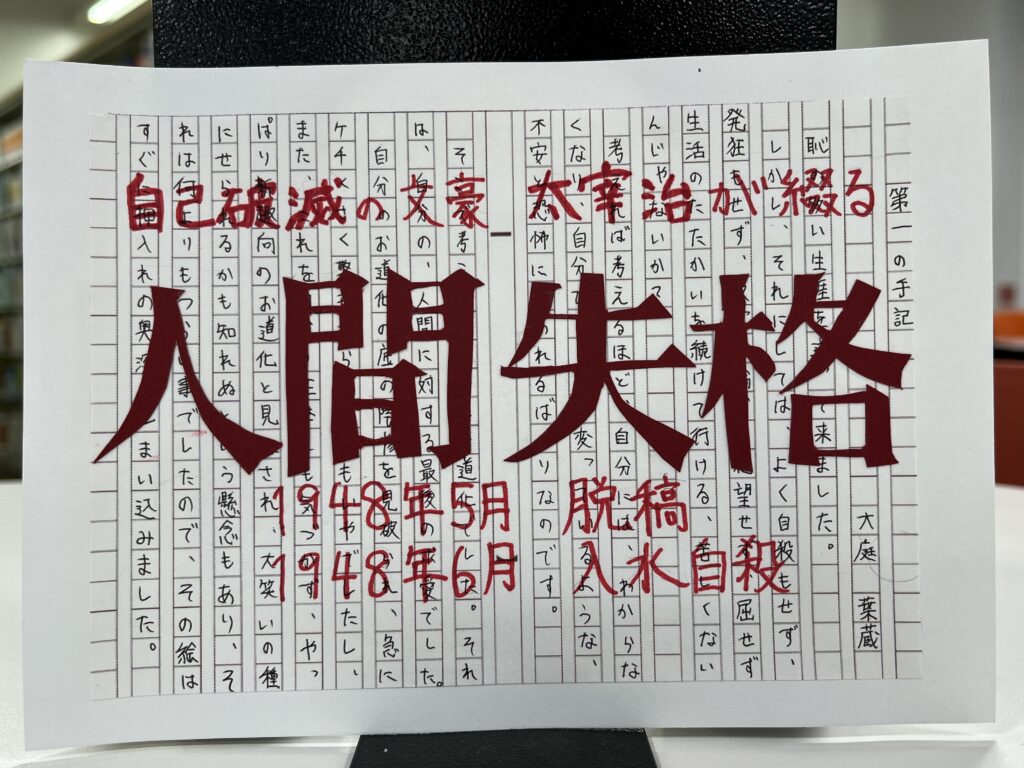 自己破滅の文豪 - 太宰治が綴る
人間失格
1948年5月 脱稿
1948年6月 入水自殺
第一の手記
大庭 葉蔵
恥の多い生涯を て来ました。
しかし、それにしては、よく自殺もせず、
発狂もせず、 望せず屈せず
生活のたたかいを続けて行ける、苦しくない
んじゃないか
考えれば考えるほど自分には、わからな
くなり、自分 変っているような、
不安と恐怖に れるばかりなのです。
そ 考え 道化でした。それ
は、自分の、人間に対する最後の求愛でした。
自分のお道化の底の陰惨を見破られ、急に
ケチくさく警 もいやでしたし、
また、これを も気づかず、やっ
ぱり新趣向のお道化と見 され、大笑いの種
にせられるかも知れぬという懸念もあり、そ
れは何よりもつらい事でしたので、その絵は
すぐに押入れの奥深くしまい込みました。